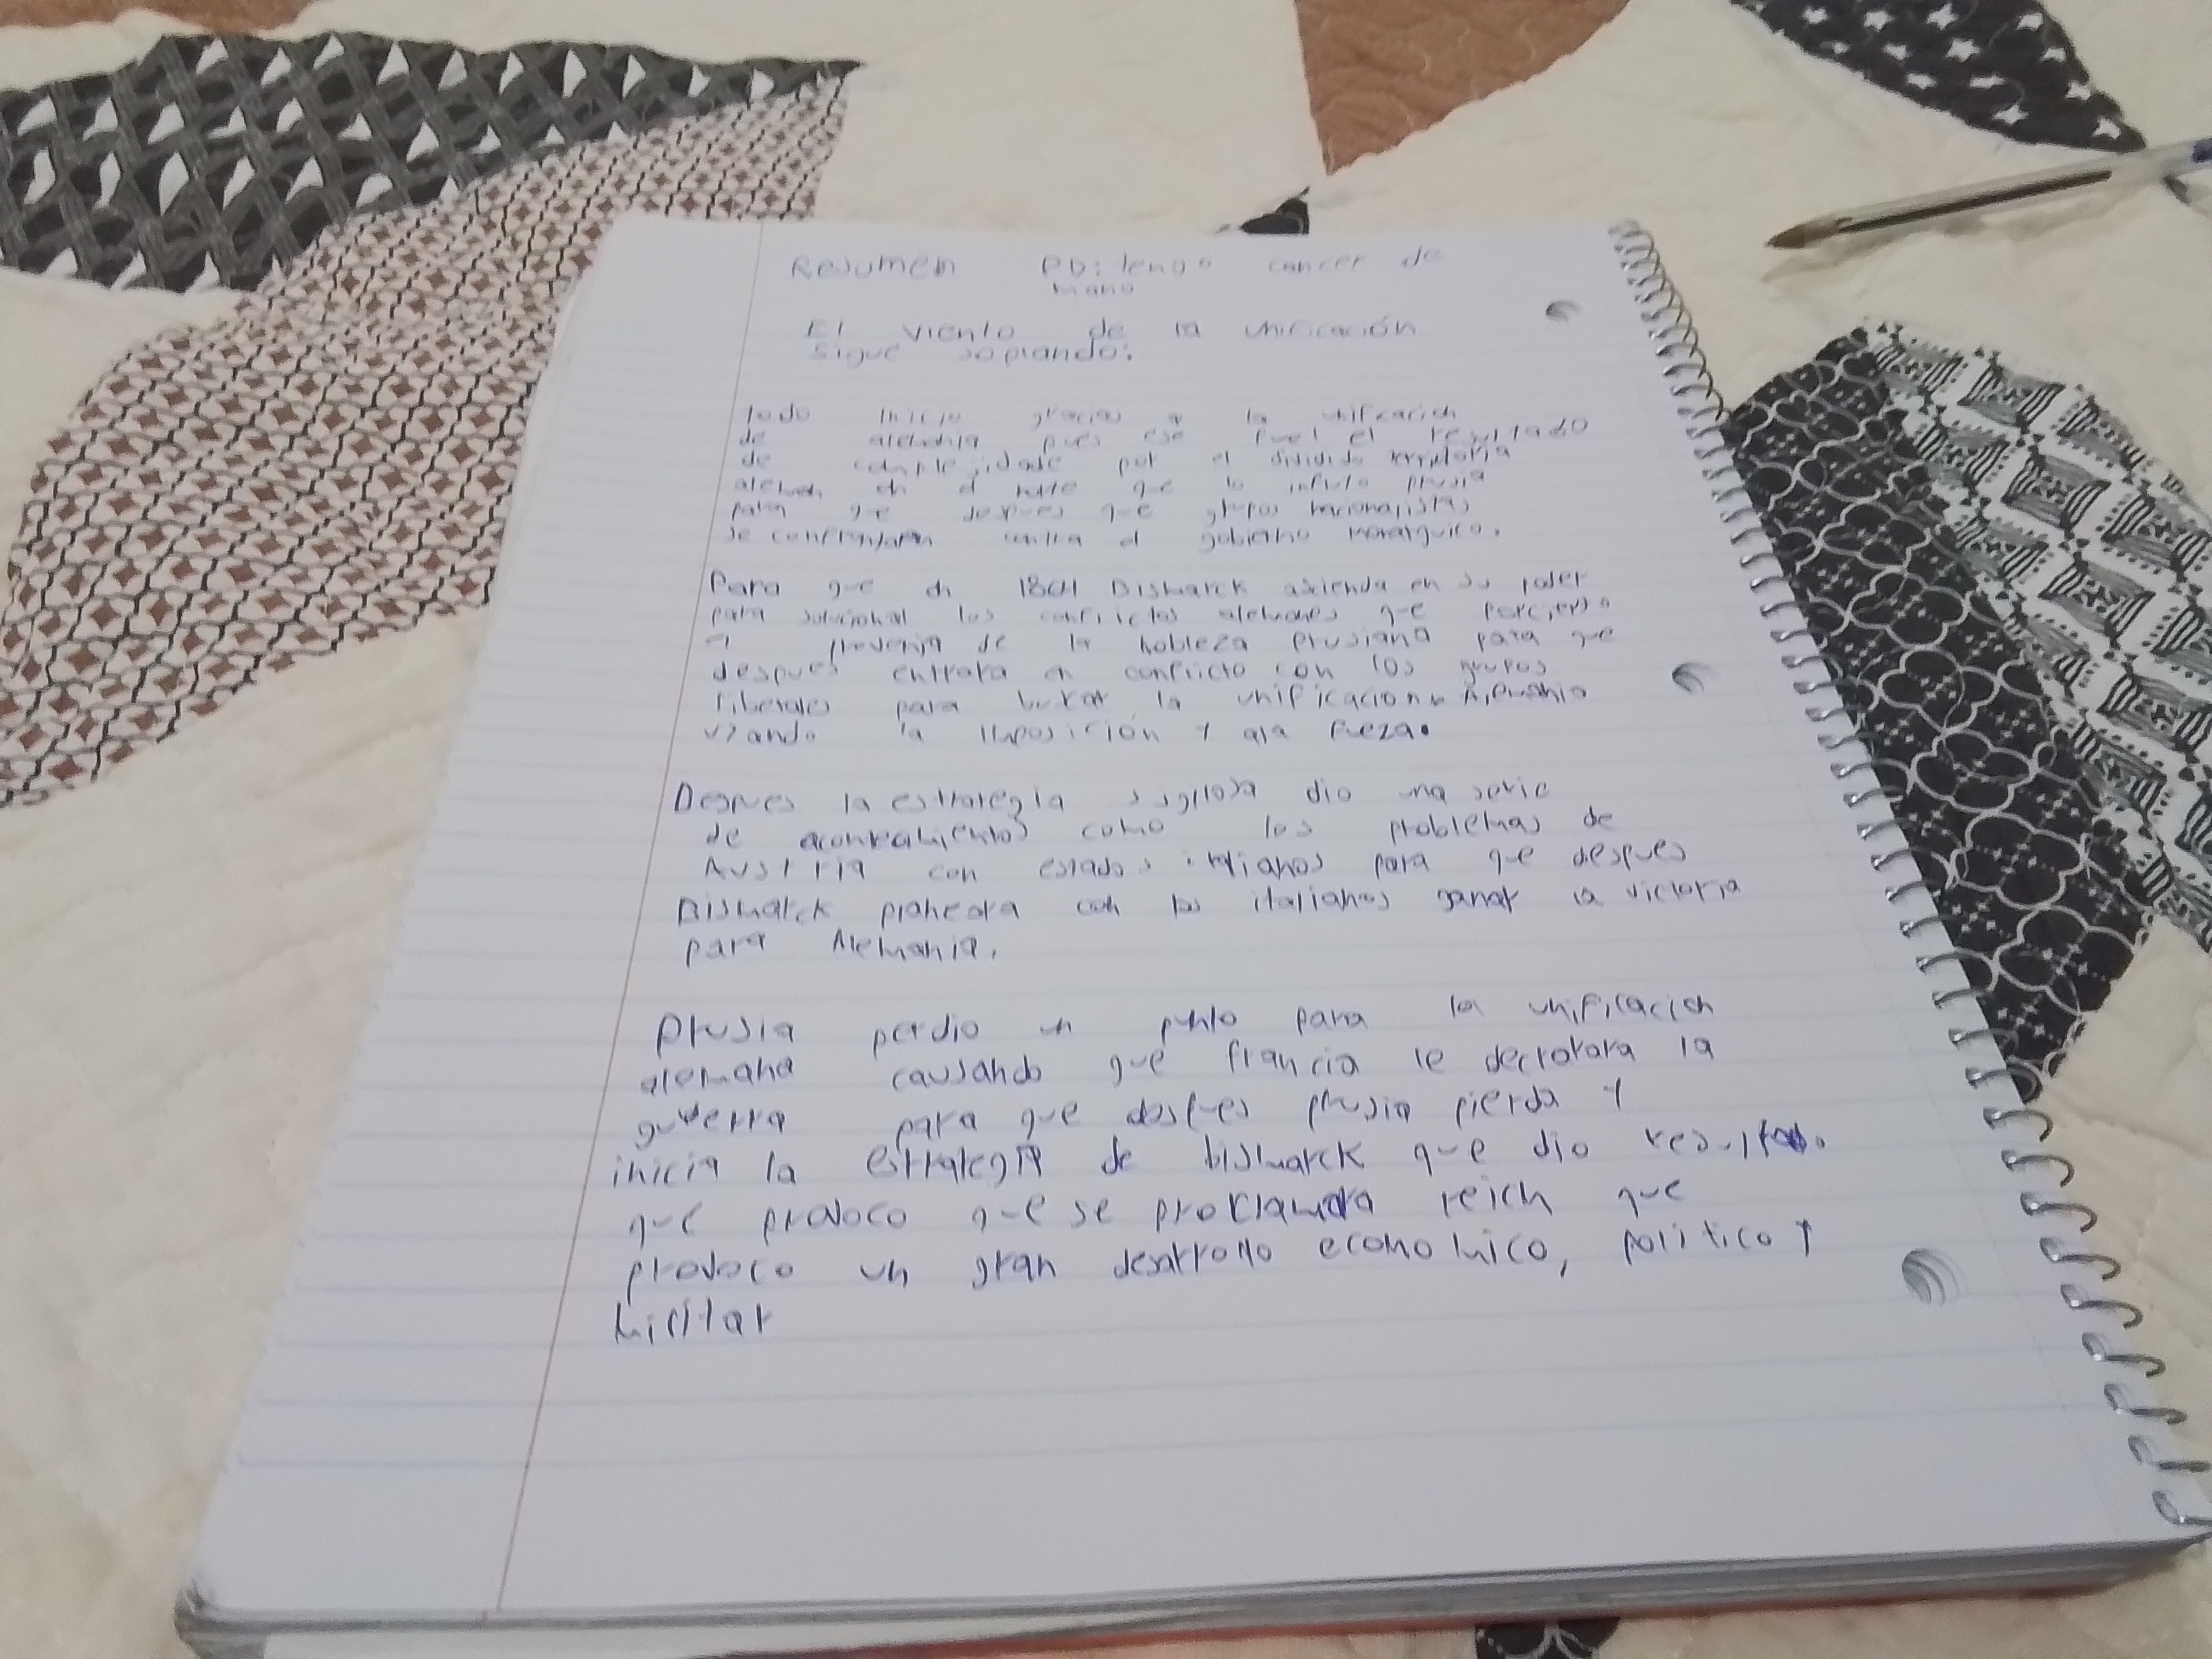 Resumen PD: tengo cancer de
mano
El viento de la unificación
sigue soplando:
todo inicio gracias a la unificacion
de alemania pues ese fuel el resultado
de complejidade por el dividido territoria
aleman en el norte que lo influto prusia
para que despues que grupos nacionalistas
se confrontaran contra el gobierno monarquico.
Para que en Bismarck asienda en su poder
para solucionar los conflictos alemanes que porcierto
el provenia de la nobleza prusiana para que
despues entrara en conflicto con los grupos
liberales para buscar la unificacion Alemania
usando la imposición y ala fueza.
Despues la estrategia sigilosa dio una serie
de acontecimientos como los problemas de
Austria con estados italianos para que despues
Bismarck planeara con los italianos ganar la victoria
para Alemania.
Prusia perdio un punto para la unificacion
alemana causando que francia le declarara la
guerra para que despues prusia pierda y
inicia la estrategia de bismarck que dio resultado.
que provoco que se proclamara reich que
provoco un gran desarrollo economico, politico y
militar